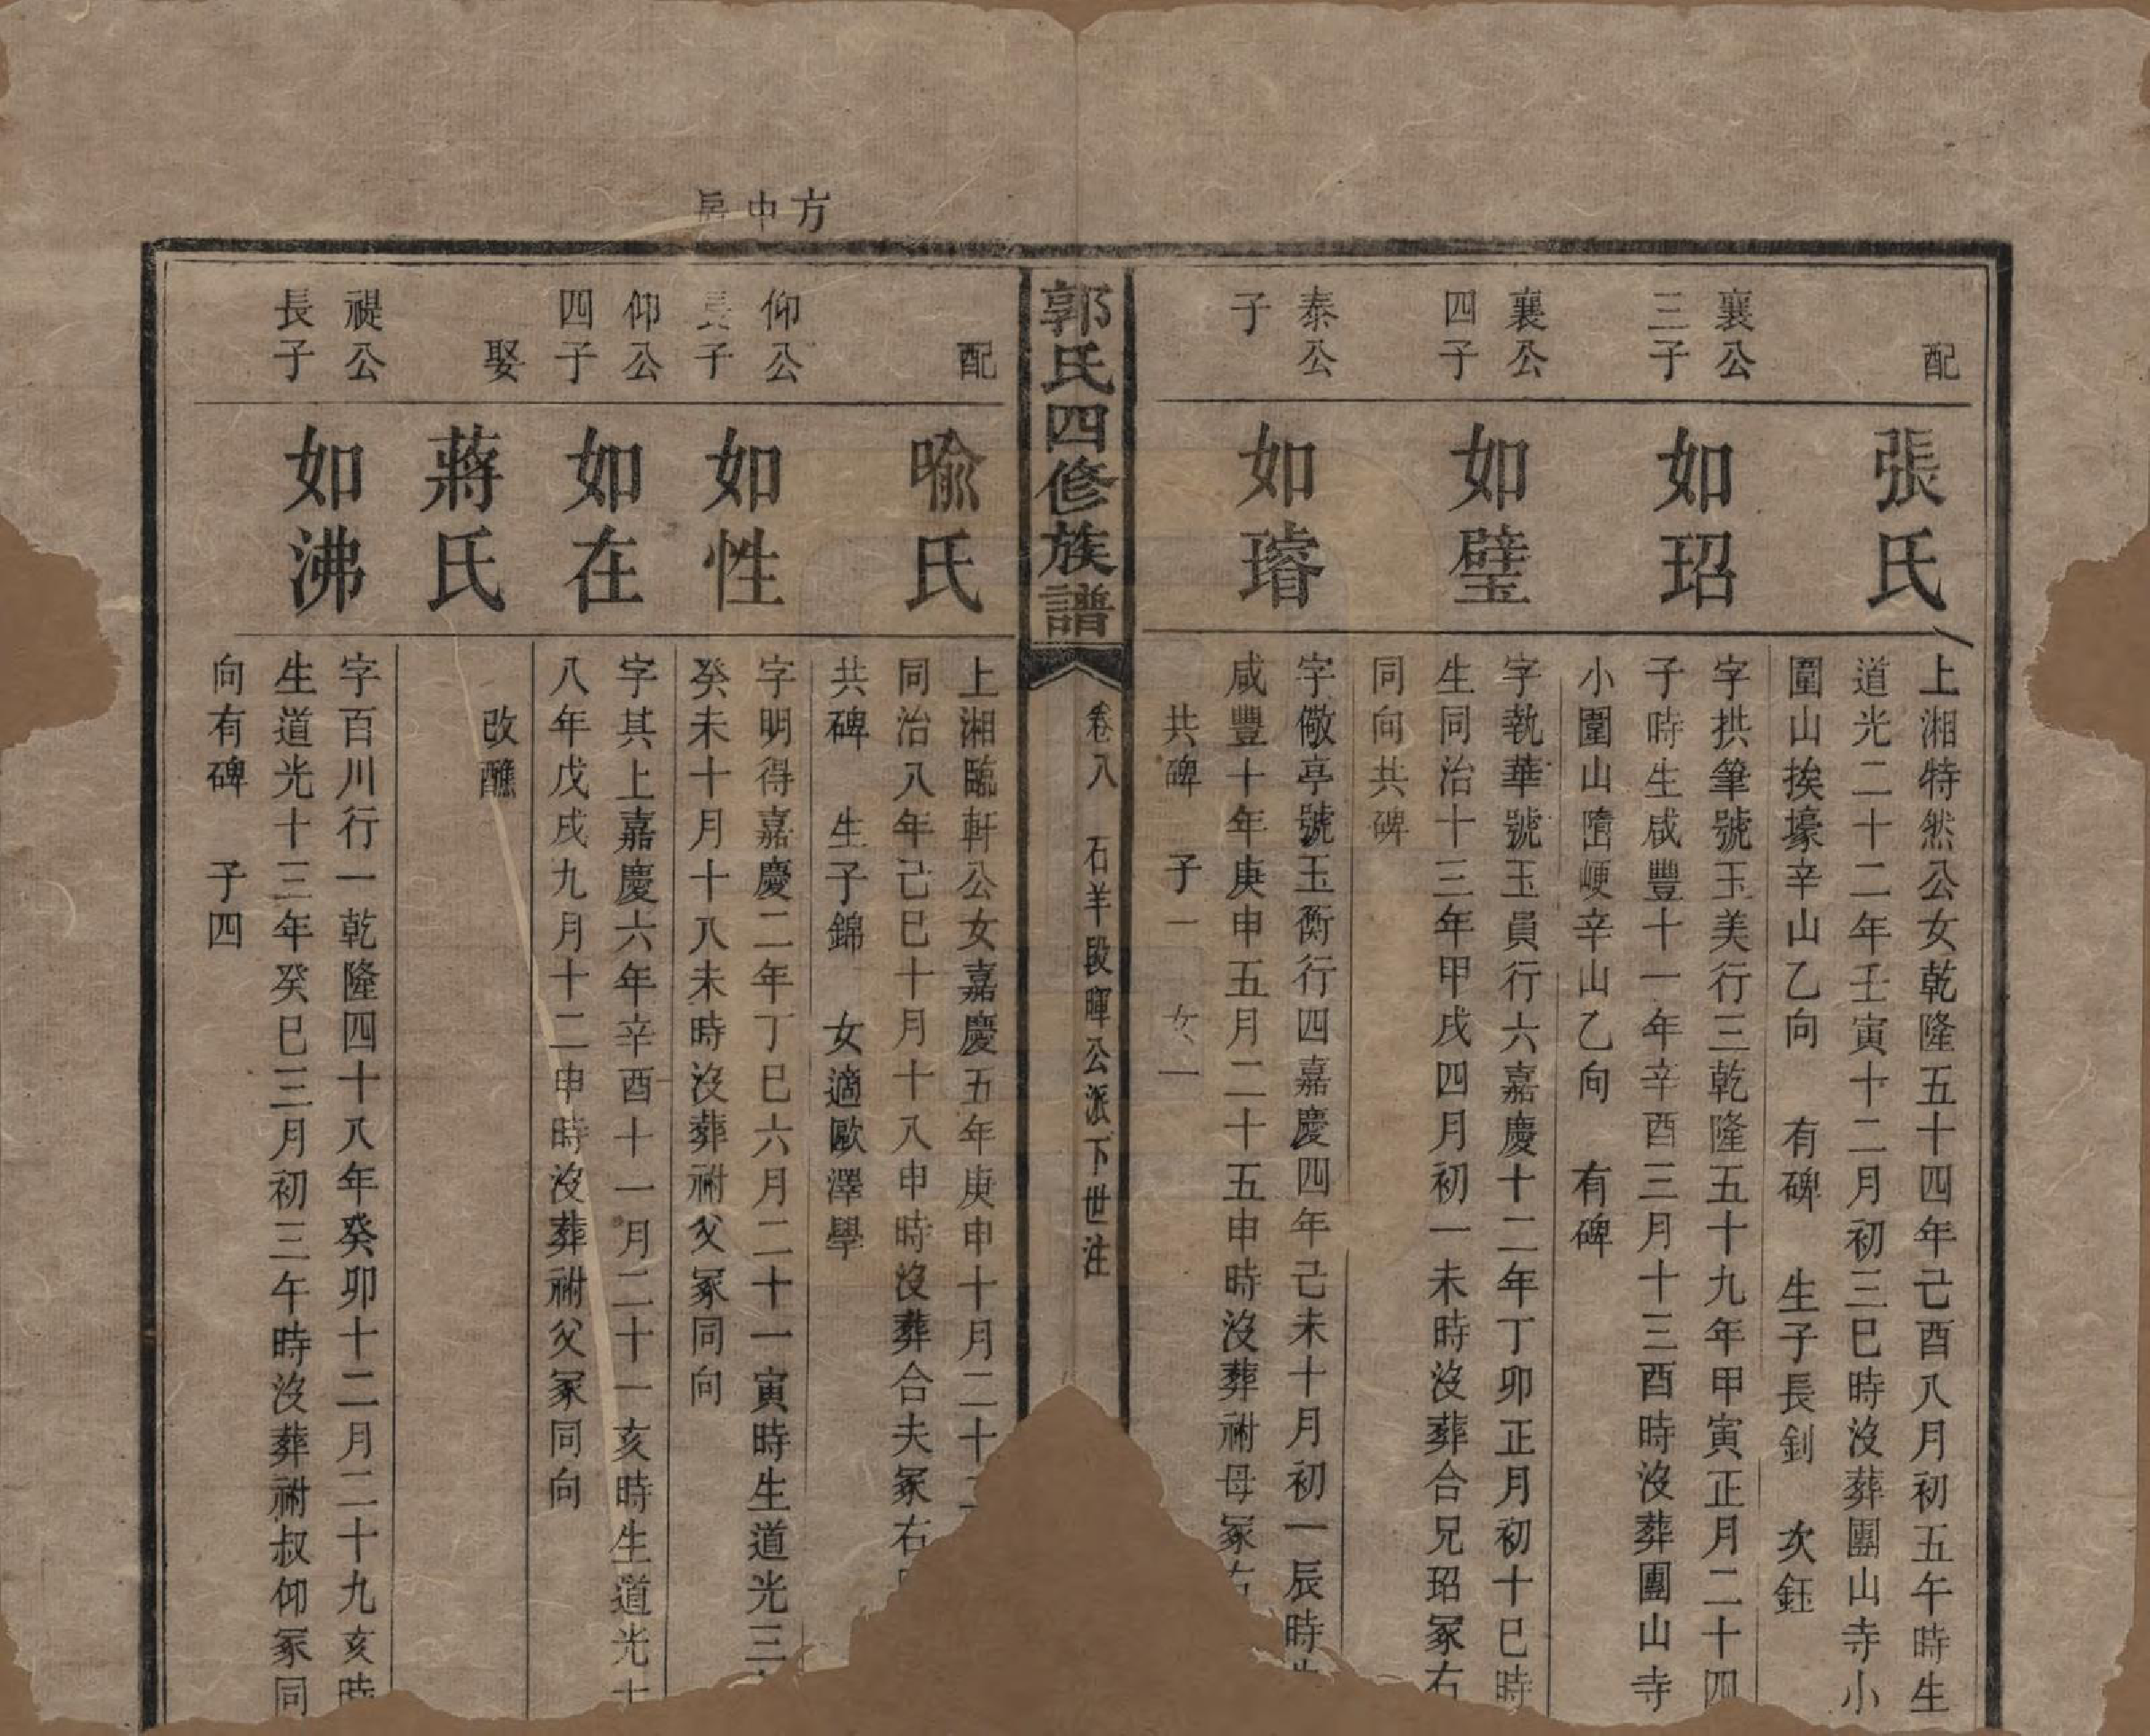 配
張氏
上湘特然公女乾隆五十四年己酉八月初五午時生
道光二十二年壬寅十二月初三巳時沒葬團山寺小
圍山挨壕辛山乙向 有碑 生子長釗 次鈺
襄公
三子
如玿
字拱筆號玉美行三乾隆五十九年甲寅正月二十四
子時生咸豐十一年辛酉三月十三酉時沒葬團山寺
小圍山𡺾峺辛山乙向 有碑
襄公
四子
如璧
字執華號玉員行六嘉慶十二年丁卯正月初十巳時
生同治十三年甲戌四月初一未時沒葬合兄玿冢右
同向共碑
泰公
子
如璿
字儆亭號玉衡行四嘉慶四年己未十月初一辰時生
咸豐十年庚申五月二十五申時沒葬祔母冢右
共碑 子一 女一
郭氏四修族譜
卷八 石羊段暉公派下世注
配
喻氏
上湘臨軒公女嘉慶五年庚申十月二十二
同治八年己巳十月十八申時沒葬合夫冢右
共碑 生子錦 女適歐澤學
方中房
仰公
長子
如性
字明得嘉慶二年丁巳六月二十一寅時生道光三
癸未十月十八未時沒葬祔父冢同向
仰公
四子
如在
字其上嘉慶六年辛酉十一月二十一亥時生道光十
八年戊戌九月十二申時沒葬祔父冢同向
娶
蔣氏
改醮
禔公
長子
如沸
字百川行一乾隆四十八年癸卯十二月二十九亥時
生道光十三年癸巳三月初三午時沒葬祔叔仰冢同
向有碑 子四